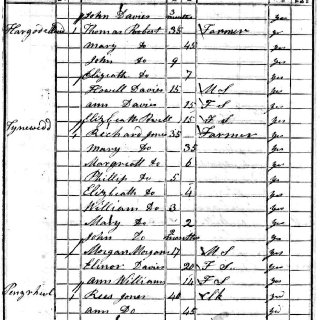 John Davies 3 months yes
1 Thomas Robert 35 Farmer yes
Mary do 45 yes
John do 9 yes
Elizabeth do 7 yes
Howell Davies 15 M S yes
Ann Davies 15 F S yes
Elizabeth Powell 15 F S yes
Tynewedd 1 Richard Jones 35 Farmer yes
Mary do 35 yes
Margrett do 6 yes
Phillip do 5 yes
Elizbeath do 4 yes
William do 3 yes
Mary do 2 yes
John Do months yes
Morgan Morgan 17 M S yes
Elinor Davies 20 F S yes
Ann Williams 14 F S yes
1 Rees Jones 40 Clk yes
Ann Do 45 yes